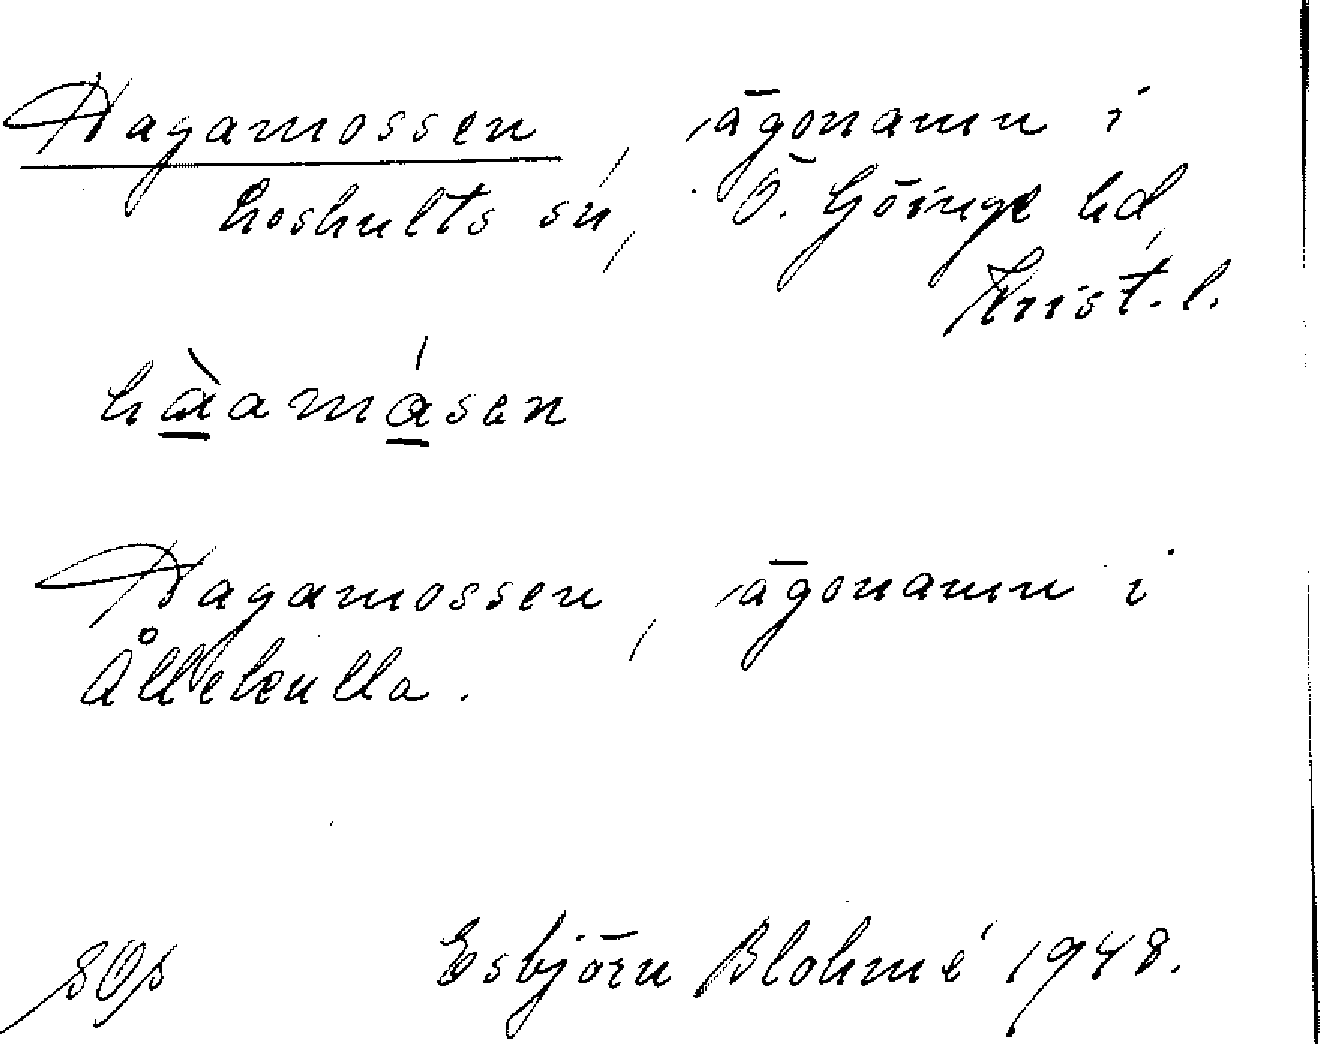 Hagamossen, ägonamn i
Loshults sn, Ö. Göinge hd,
Krist. l.
hàamásen
Hagamossen, ägonamn i
Ållekulla.
Esbjörn Blohmé 1948.